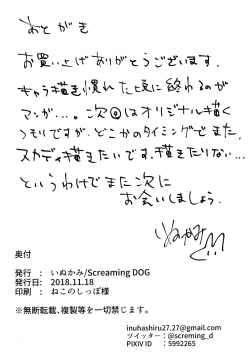 あとがき
お買い上げありがとうございます.
キャラ描き慣れた頃に終わるのが
マンガ…。次回はオリジナル描く
つもりですが、どこかのタイミングでまた、
スカディ描きたいです。描きたりない…
というわけでまた次に
お会いしましょう.
いぬかみ
奥付
発行 : いぬかみ/Screaming DOG
発行日: 2018.11.18
印刷 : ねこのしっぽ様
※無断転載、複製等を一切禁じます。
inuhashiru27.27@gmail.com
ツイッター:@screming_d
PIXIV ID :5992265